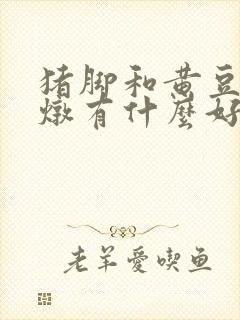 猪脚和黄豆
燉有什麼好
老羊愛喫鱼